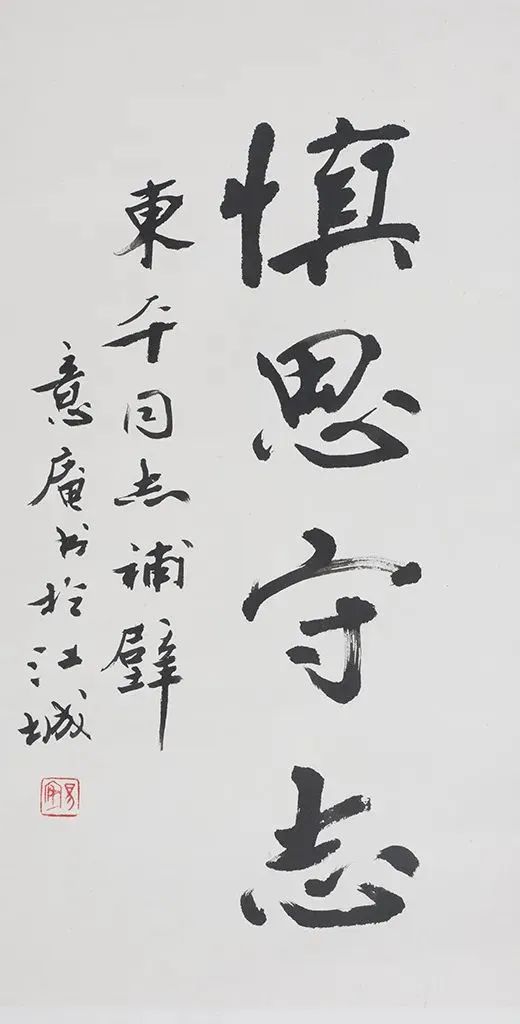 慎思守志
東平同志補壁
意庵书於江城